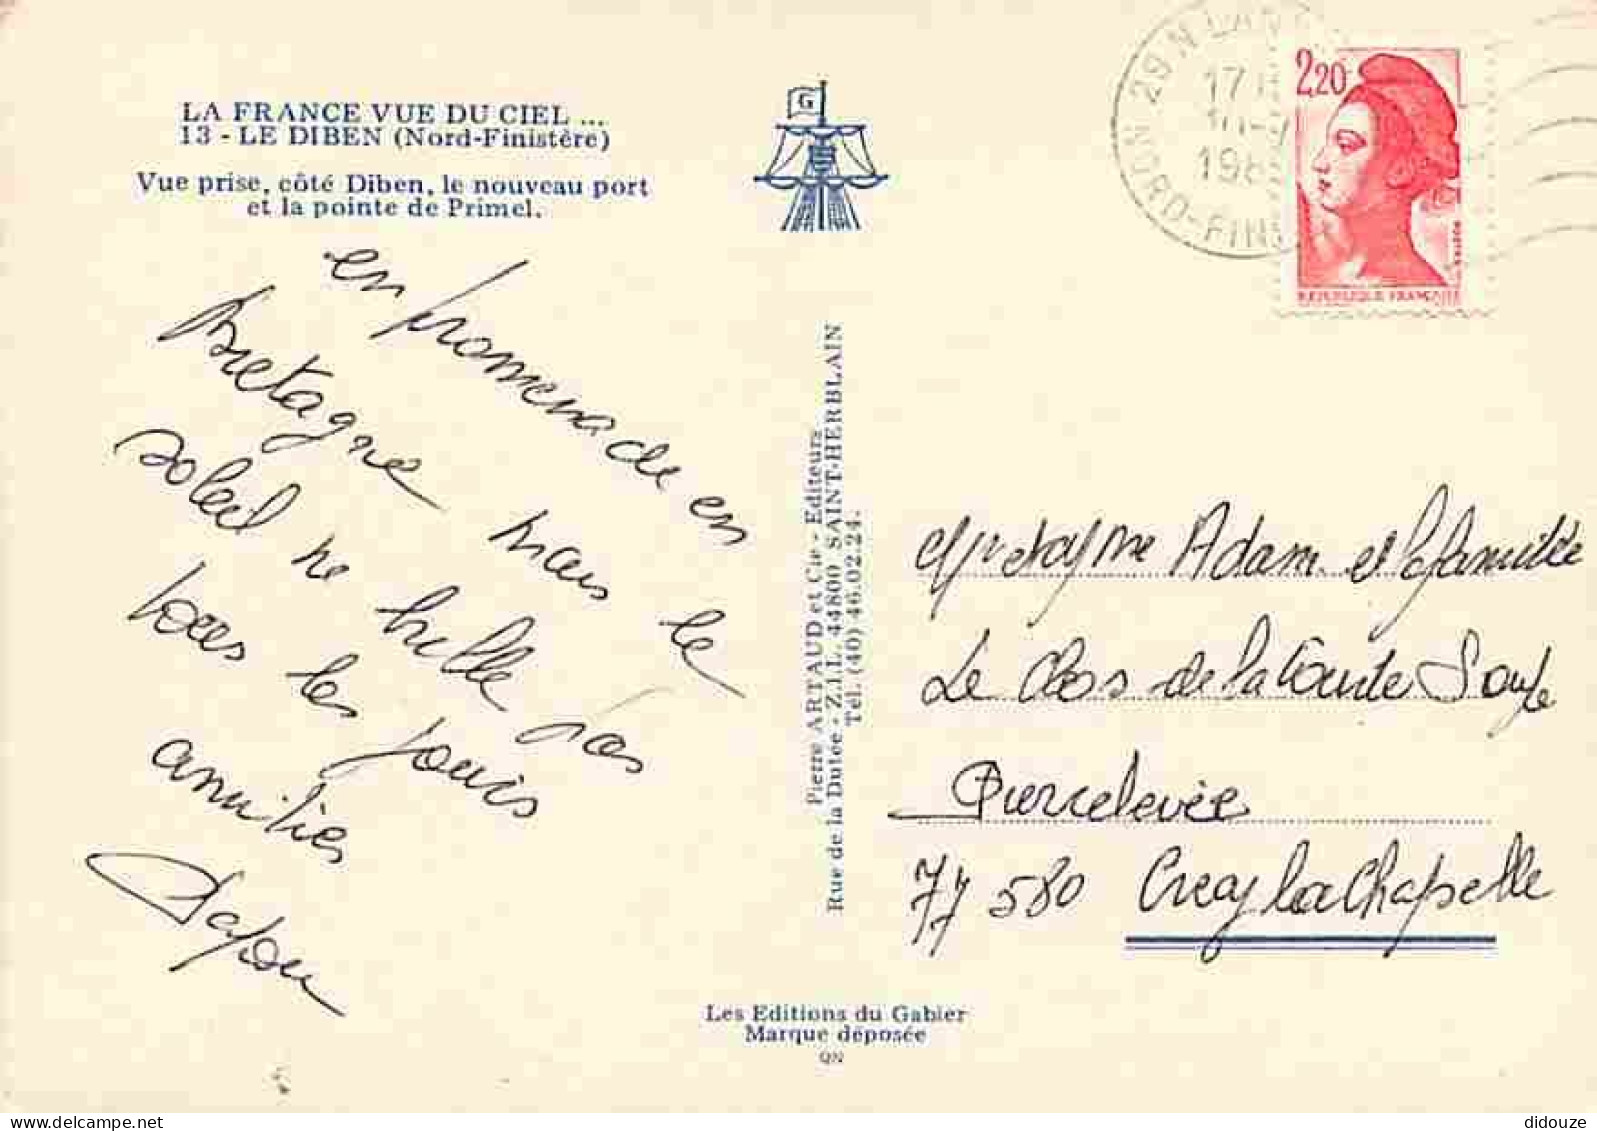 LA FRANCE VUE DU CIEL ...
13 - LE DIBEN (Nord-Finistère)
Vue prise, côté Diben, le nouveau port
et la pointe de Primel.
G
en promenade en
Bretagne mais le
soleil ne brille pas
tous les jours
amitiés
Pierre ARTAUD et Cie - Editeurs
Rue de la Dutée - Z.I.L. 44800 SAINT-HERBLAIN
Tél. (40) 46.02.24.
29 N LAN
17 H
198
NORD-FINI
2,20
REPUBLIQUE FRANÇAISE
Adam et la famille
Le Clos de la
Pierrelevée
77 580 Crecy la Chapelle
Les Editions du Gabier
Marque déposée
QN
didouze